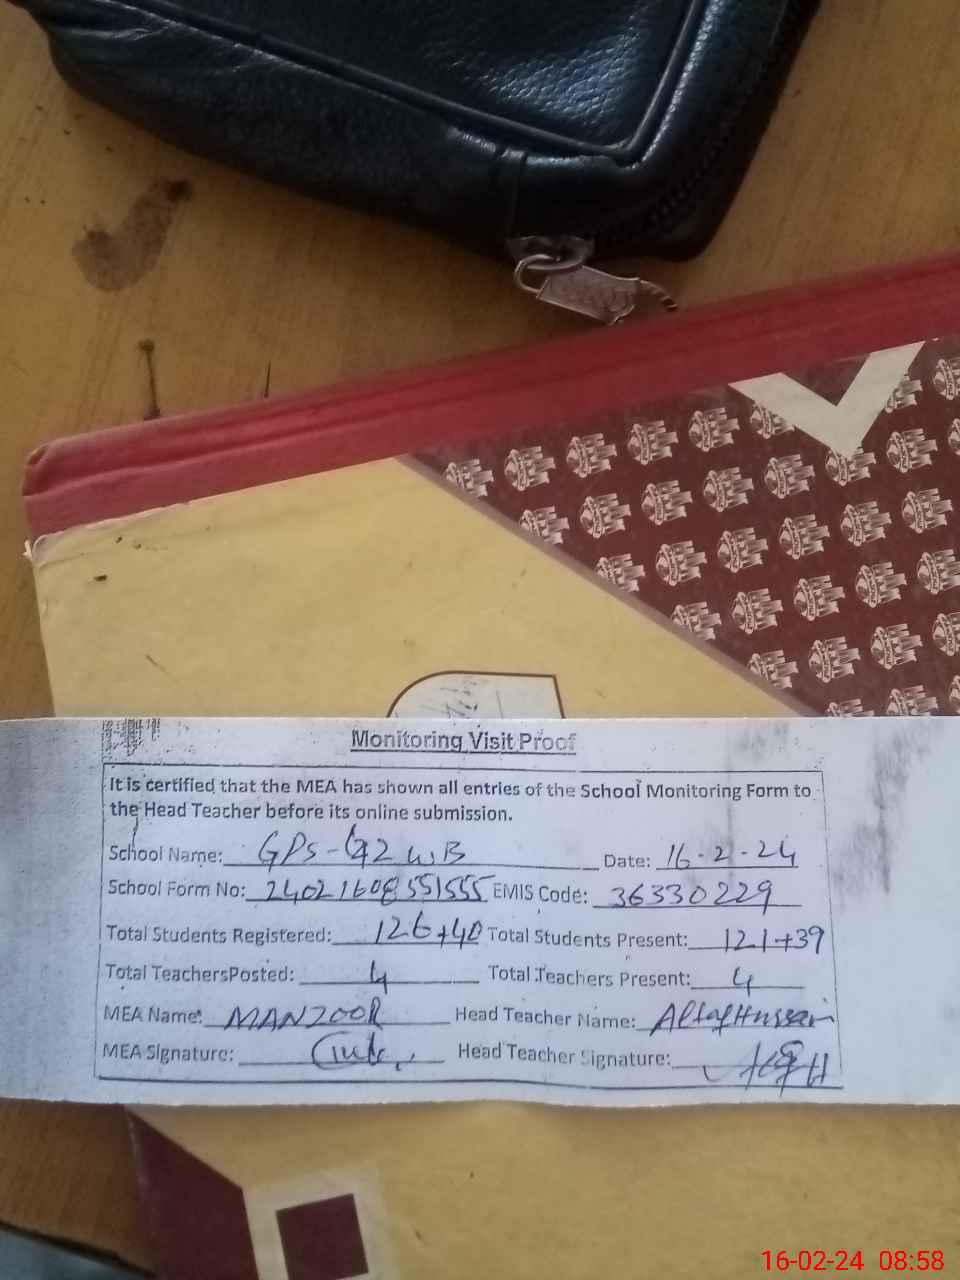 Monitoring Visit Proof
It is certified that the MEA has shown all entries of the School Monitoring Form to
the Head Teacher before its online submission.
School Name: GPS- 42 WB Date: 16-2-24
School Form No: 24021608551555 EMIS Code: 36330229
Total Students Registered: 126+40 Total Students Present: 121+39
Total TeachersPosted: 4 Total Teachers Present: 4
MEA Name: MANZOOR Head Teacher Name: Altaf Hussain
MEA Signature: Head Teacher Signature:
16-02-24 08:58